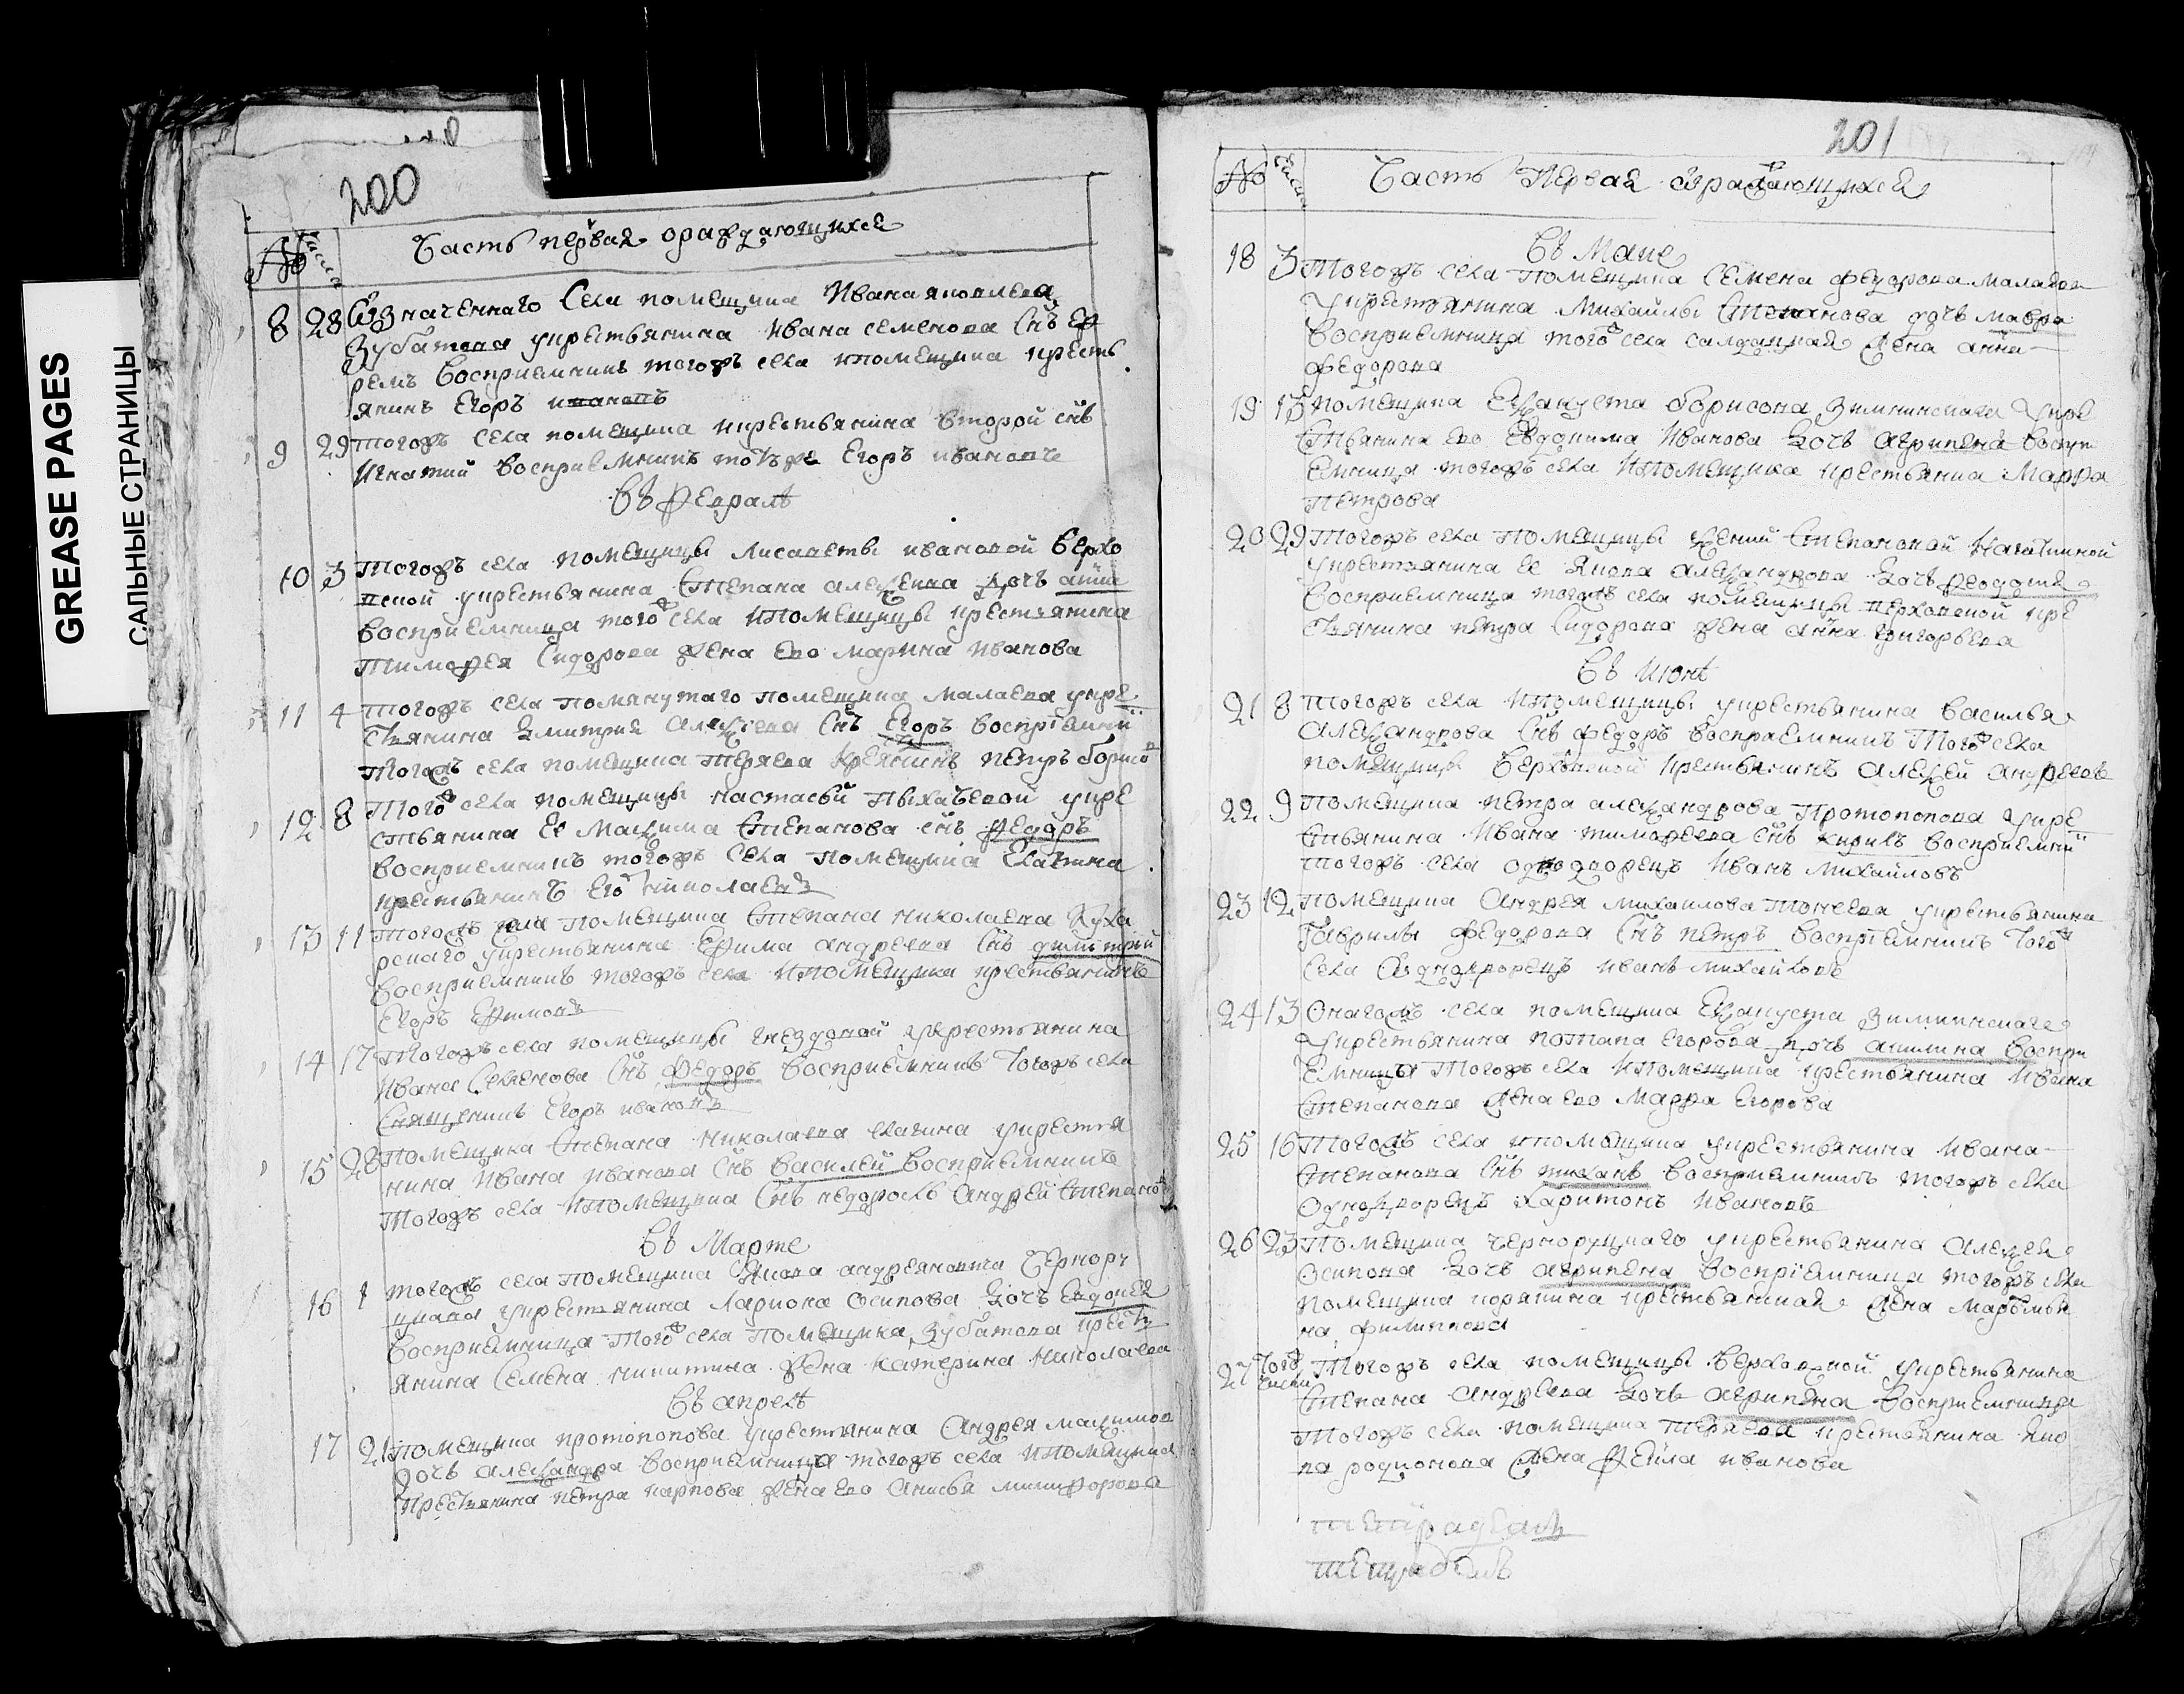 GREASE PAGES
САЛЬНЫЕ СТРАНИЦЫ
200
№ числа
Часть первая ораждающихся
8 28 Означеннаго села помещика Ивана яковлева
Зубатова укрестьянина Ивана семенова снъ еф
ремъ восприемникъ тогожъ села ипомещика кресть
янинъ Егоръ ивановъ
9 29 тогожъ села помещика икрестьянина второй снъ
Игнатий восприемникъ тотъже Егоръ ивановъ
Въ феврале
10 3 тогожъ села помещицы лисаветы ивановой верхо
вской укрестьянина Степана алексеева дочь анна
восприемница тогож села ипомещицы крестьянина
тимофея Сидорова жена ево марина иванова
11 4 тогожъ села помянутаго помещика малаева укре
стьянина Дмитрия алексеева снъ Егоръ восприемни
тогожъ села помещика теряева кренинъ петръ борисо
12 8 Тогож села помещицы настасьи укре
стьянина ее Максима Степанова снъ федоръ
восприемникъ тогожъ села помещика
крестьянинъ Его николаевъ
13 11 тогожъ села помещика Степана николаева
рскаго укрестьянина Ефима андреева снъ дмитрей
восприемникъ тогожъ села ипомещика крестьянинъ
Егоръ Ефимовъ
14 17 тогожъ села помещицы гнездовой укрестьянина
Ивана Семенова снъ федоръ восприемникъ тогожъ села
Священникъ Егоръ ивановъ
15 28 помещика Степана Николаева елагина укрестья
нина Ивана иванова снъ василей восприемникъ
тогожъ села ипомещика снъ недоросль андрей степано
Въ Марте
16 1 тогожъ села помещика Якова андреяновича Чернору
цкава укрестьянина лариона осипова дочь Евдокея
восприемница тогож села помещика Зубатова кресть
янина семена никитина жена катерина Николаева
Въ апреле
17 21 помещика протопопова укрестьянина андрея максимов
дочь александра восприемница тогожъ села ипомещика
крестьянина петра карпова жена ево анисья никифорова
201
№ числа
Часть первая ораждающихся
Въ Маие
18 3 Тогожъ села помещика семена федорова малаева
укрестьянина михайлы Степанова дочь мавра
восприемница тогож села салдацкая жена анна
федорова
19 13 помещика Евланпуста борисова Зимнинскаго укре
стьянина ево Евдокима Иванова дочь агрипена воспри
емница тогожъ села ипомещика крестьянка Марфа
петрова
20 29 тогожъ села помещицы Степановой
укрестьянина ее Якова александрова дочь феодосия
восприемница тогожъ села помещицы верховской кре
стьянина петра Сидорова жена анна григорьева
Въ июне
21 8 тогожъ села ипомещицы укрестьянина василья
александрова снъ федоръ восприемникъ тогож села
помещицы верховской крестьянинъ алексей андреевъ
22 9 помещика петра александрова протопопова укре
стьянина Ивана тимофеева снъ кирилъ восприемни
тогожъ села однодворецъ Иванъ михайловъ
23 12 помещика андрея михаилова укрестьянина
Гаврилы федорова снъ петръ восприемникъ тогож
села однодворецъ иванъ михайловъ
24 13 Онагожъ села помещика зимнинскаго
укрестьянина потапа егорова дочь акилина воспри
емница тогожъ села ипомещика крестьянина ивана
Степанова жена ево Марфа Егорова
25 16 тогожъ села ипомещика укрестьянина Ивана
Степанова снъ тиханъ восприемникъ тогожъ села
однодворецъ харитонъ Ивановъ
26 23 помещика черноруцкаго укрестьянина алексея
осипова дочь агрипена восприемница тогожъ села
помещика корякина крестьянская жена марьямья
на филипова
27 Тогож числа Тогожъ села помещицы верховской укрестьянина
Степана андреева дочь агрипена восприемница
тогожъ села помещика теряева крестьянина яко
ва родионова жена фекла иванова